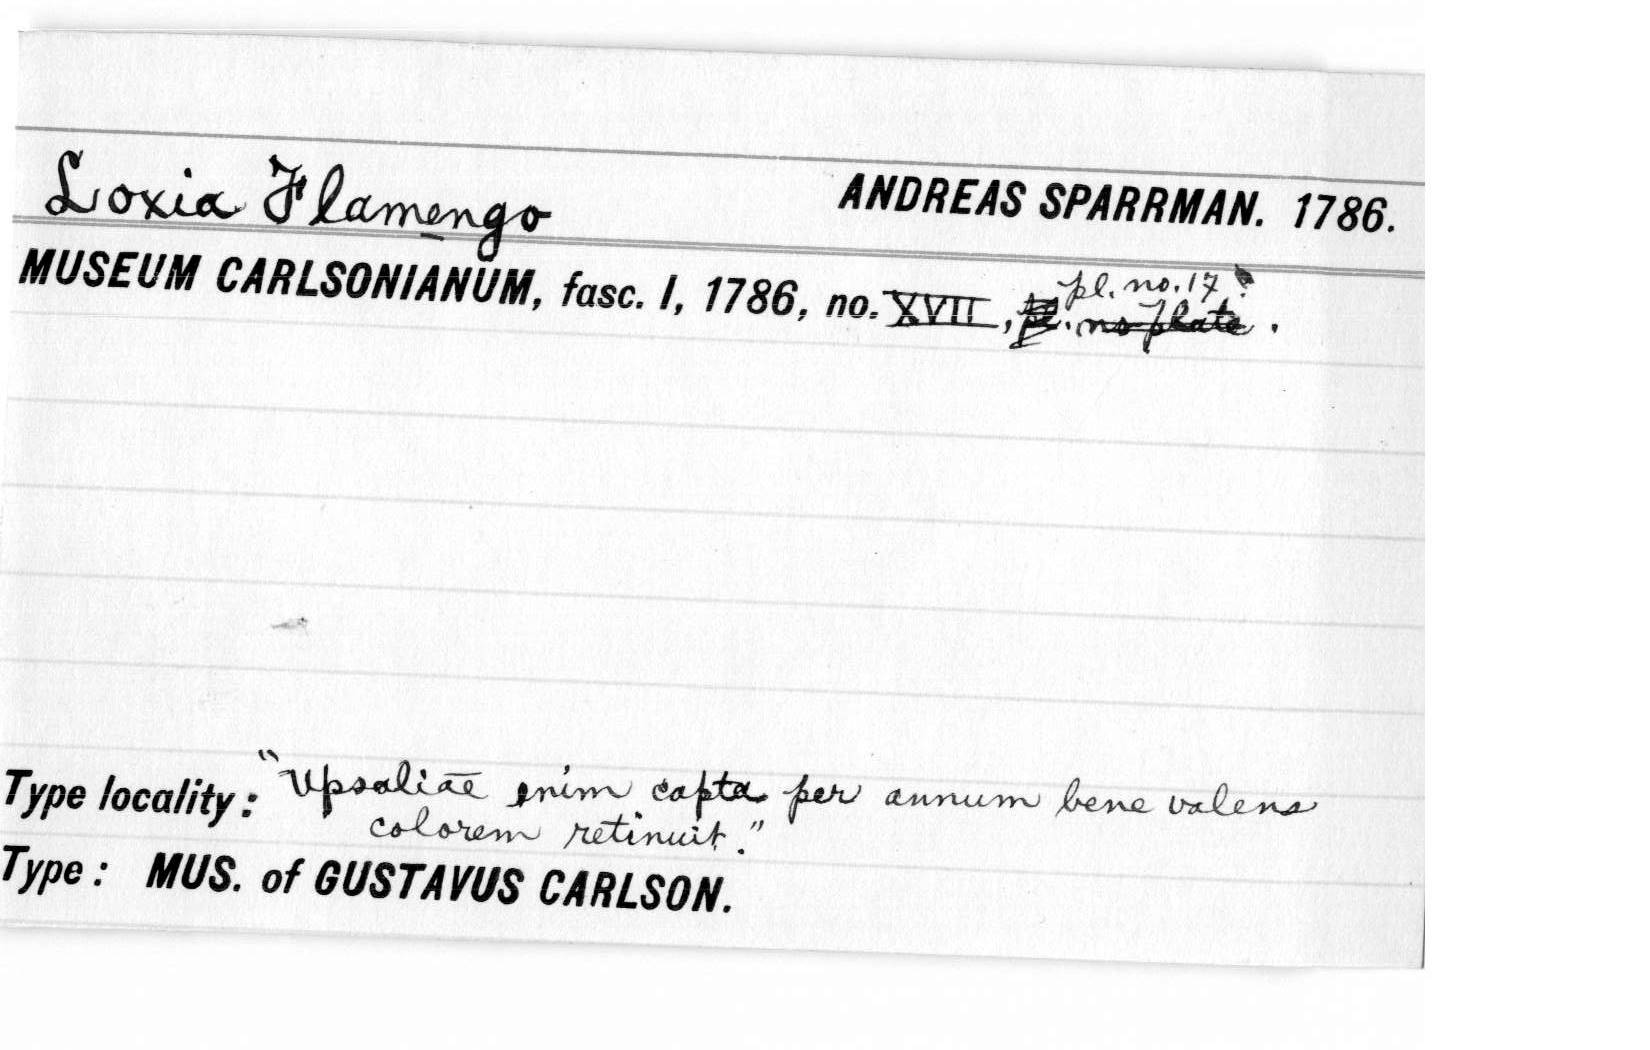 Loxia Flamengo
ANDREAS SPARRMAN. 1786.
pl. no. 17
MUSEUM CARLSONIANUM, fasc. I, 1786, no. XVII, pl. no plate.
Type locality: "Upsaliae enim capta per annum bene valens
colorem retinuit."
Type: MUS. of GUSTAVUS CARLSON.